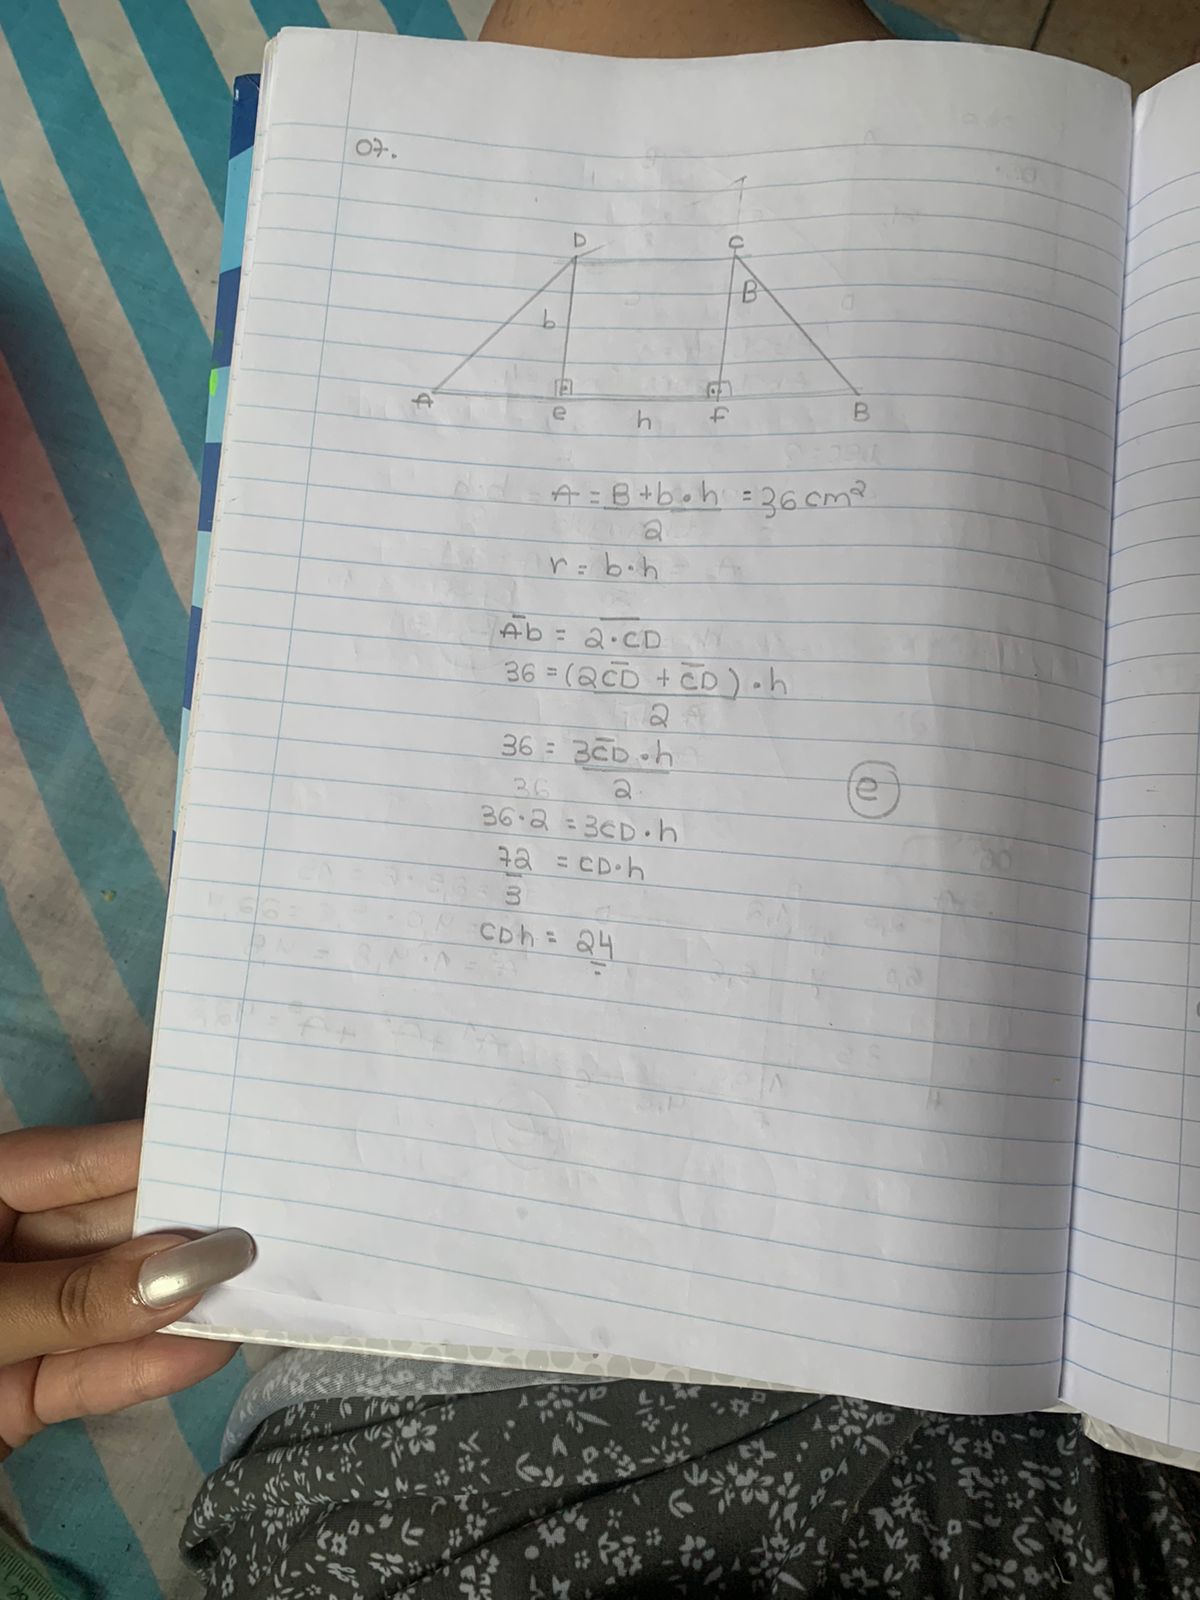 07.
D C
b B
A e f B
h
A = B + b • h = 36 cm²
2
r = b • h
A̅b̅ = 2 • C̅D̅
36 = (2C̅D̅ + C̅D̅) • h
2
36 = 3C̅D̅ • h
36 2
e
36 • 2 = 3CD • h
72 = CD • h
3
CDh = 24